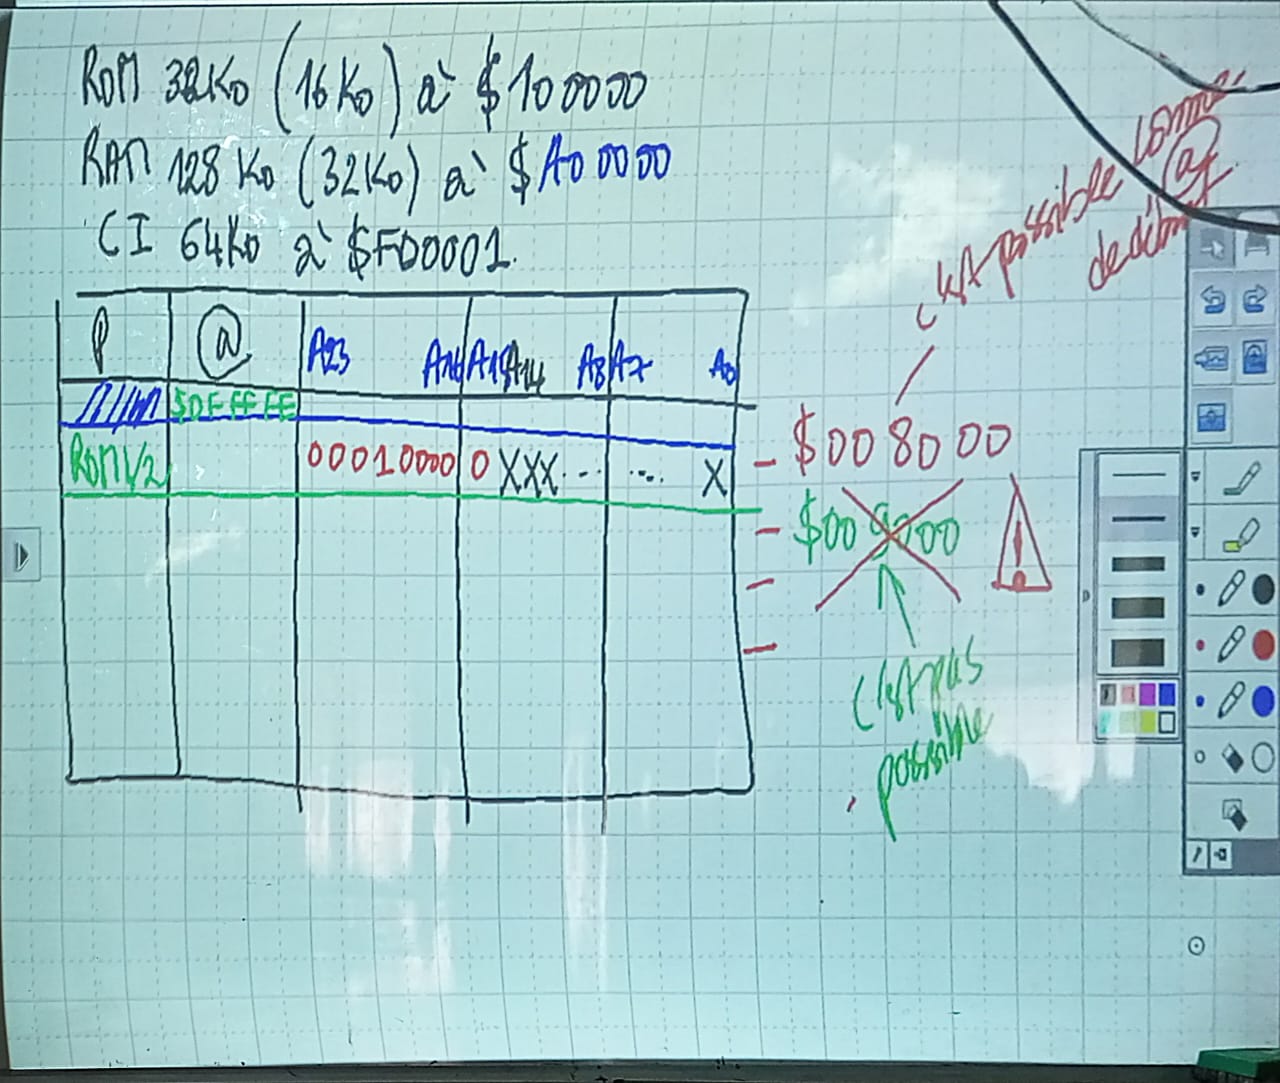 ROM 32Ko (16Ko) à $100000
RAM 128 Ko (32Ko) à $A00000
CI 64Ko à $FD0001.
P @ A23 A16 A15 A14 A8 A7 A0
$DFFFFE
ROM1/2 00010000 0XXX... ... X
c'est possible comme
@
de début
- $008000
- $009000
!
c'est pas
possible